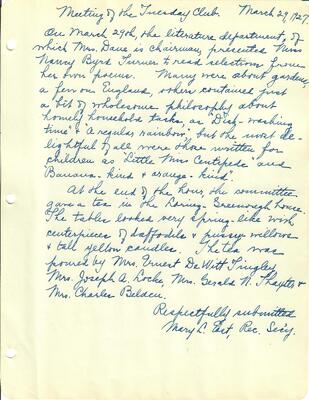 Meeting of the Tuesday Club. March 29, 1927.
On March 29th, the literature department, of
which Mrs. Dane is chairman, presented Miss
Nancy Byrd Turner to read selections from
her own poems. Many were about gardens,
a few on England, others contained just
a bit of wholesome philosophy about
homely household tasks, as "Dish-washing
time" & "A regular rainbow", but the most de-
lightful of all were those written for
children as "Little Miss Centipede" and
"Banana-kind & orange-kind".
At the end of the hour, the committee
gave a tea in the Loring-Greenough house.
The tables looked very spring-like with
centerpieces of daffodils & pussy willows
& tall yellow candles. The tea was
poured by Mrs. Ernest De Witt Tingley,
Mrs. Joseph A. Locke, Mrs. Gerald W. &
Mrs. Charles Belden.
Respectfully submitted
Mary L. East, Rec. Sec'y.